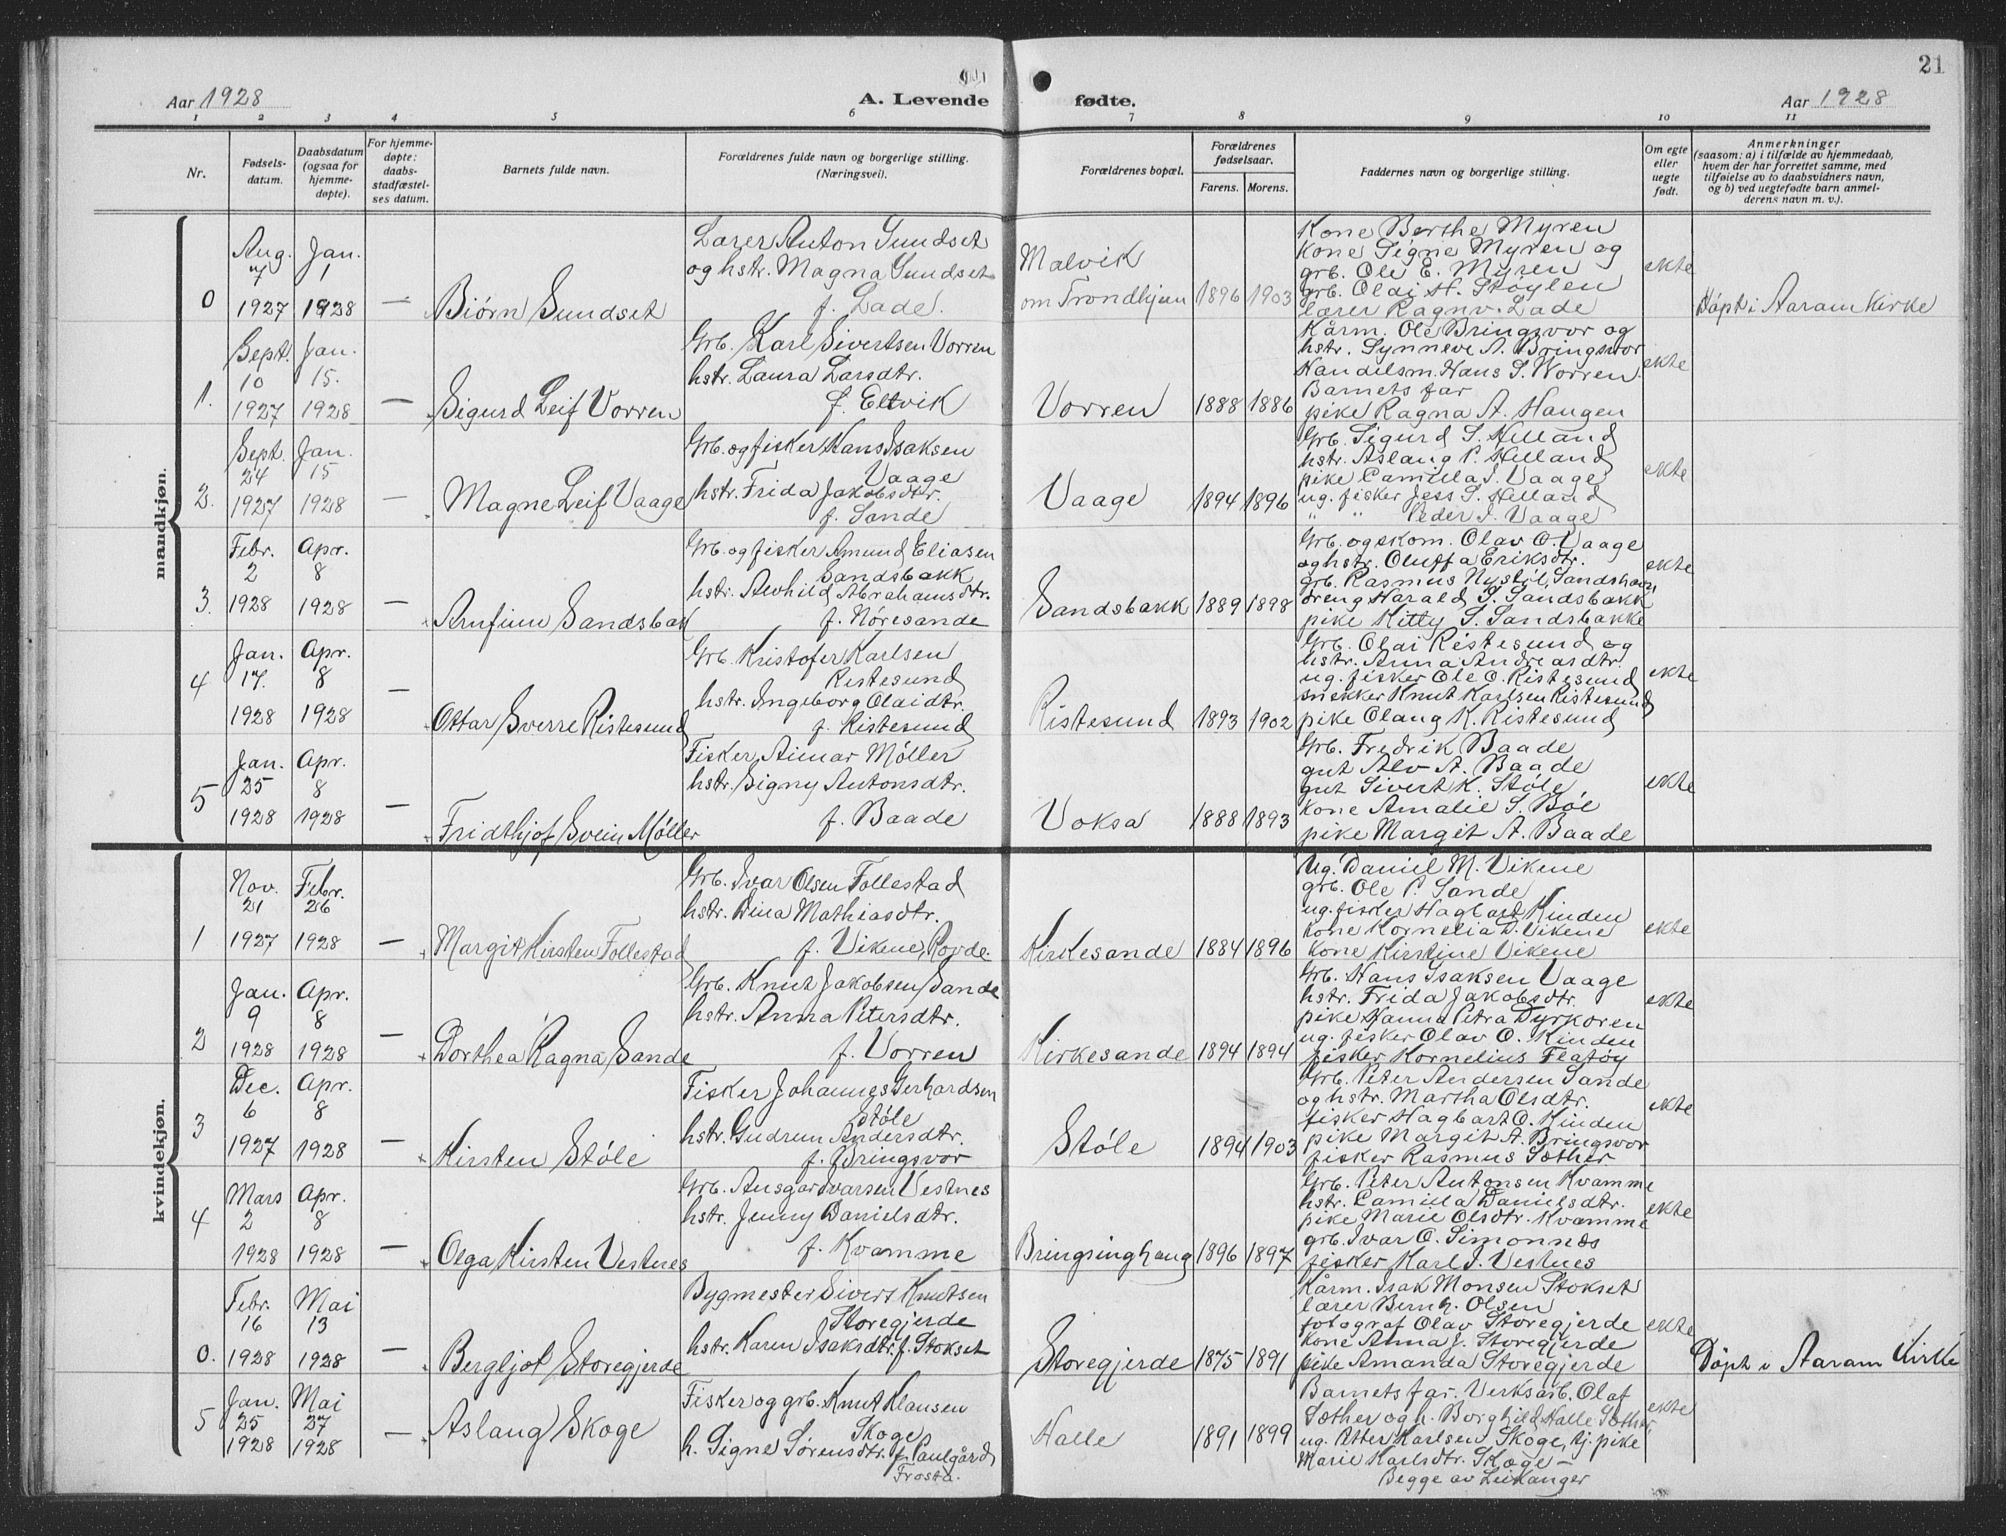 21
Aar 1928
A. Levende
fødte.
Aar 1928
1 2 3 4 5 6 7 8 9 10 11
Nr.
Fødsels-
datum.
Daabsdatum
(ogsaa for
hjemme-
døpte).
For hjemme-
døpte:
daabs-
stadfæstel-
ses datum.
Barnets fulde navn.
Forældrenes fulde navn og borgerlige stilling.
(Næringsvei).
Forældrenes bopæl.
Forældrenes
fødselsaar.
Farens. Morens.
Faddernes navn og borgerlige stilling.
Om egte
eller
uegte
født.
Anmerkninger
(saasom: a) i tilfælde av hjemmedaab,
hvem der har forrettet samme, med
tilføielse av to daabsvidners navn,
og b) ved uegtefødte barn anmel-
derens navn m. v.).
mandkjøn.
0
Aug.
7
1927
Jan.
1
1928
—
Biørn Sundset
Lærer Anton Sundset
og hstr. Magna Sundset
f. Lade.
Malvik
om Trondhjem
1896 1903
Kone Berthe Myren
kone Signe Myren og
grb. Ole E. Myren
grb. Olai H. Støylen
lærer Ragnv. Lade
ekte
Døpt i Aaram Kirke
1.
Sept.
10
1927
Jan.
15.
1928
—
Sigurd Leif Vorren
Grb. Karl Sivertsen Vorren
hstr. Laura Larsdtr.
f. Eltvik
Vorren
1888 1886
Kårm. Ole Bringsvor og
hstr. Synneve A. Bringsvor
Handelsm. Hans S. Vorren.
Barnets far
pike Ragna A. Haugen
ekte
2.
Sept.
24
1927
Jan.
15
1928
—
Magne Leif Vaage
Grb. og fisker Hans Isaksen
Vaage
hstr. Frida Jakobsdtr.
f. Sande
Vaage
1894 1896
Grb. Sigurd S. Helland
hstr. Aslaug P. Helland
pike Camilla I. Vaage
ug. fisker Jess S. Helland
" " Peder I. Vaage
ekte
3.
Febr.
2
1928
Apr.
8
1928
—
Arnfinn Sandsbak
Grb. og fisker Amund Eliasen
Sandsbakk
hstr. Alvhild Abrahamsdtr.
f. Nøresande
Sandsbakk
1889 1898
Grb. og skom. Olav O. Vaage
og hstr. Oluffa Eriksdtr.
grb. Rasmus Nystøl, Sandshavn
dreng Harald S. Sandsbakk
pike Kitty S. Sandsbakke
ekte
4
Jan.
17.
1928
Apr.
8
1928
—
Ottar Sverre Ristesund
Grb. Kristofer Karlsen
Ristesund
hstr. Ingeborg Olaidtr.
f. Ristesund
Ristesund
1893 1902
Grb. Olai Ristesund og
hstr. Anna Andreasdtr.
ug. fisker Ole O. Ristesund
snekker Knut Karlsen Ristesund
pike Olaug K. Ristesund
ekte
5
Jan.
25
1928
Apr.
8
1928
—
Fridthjof Svein Møller
Fisker Aimar Møller
hstr. Signy Antonsdtr.
f. Baade
Voksa
1888 1893
Grb. Fredrik Baade
gut Alv A. Baade
gut Sivert K. Støle
kone Amalie S. Bøe
pike Margit A. Baade
ekte
kvindekjøn.
1
Nov.
21
1927
Febr.
26
1928
—
Margit Kirsten Follestad
Grb. Ivar Olsen Follestad
hstr. Dina Mathiasdtr.
f. Vikene, Rovde.
Kirkesande
1884 1896
Ug. Daniel M. Vikene
grb. Ole P. Sande
ug. fisker Hagbart Kinden
kone Kornelia D. Vikene
kone Kirstine Vikene
ekte
2
Jan.
9
1928
Apr.
8
1928
—
Dorthea Ragna Sande
Grb. Knut Jakobsen Sande
hstr. Anna Petersdtr.
f. Vorren
Kirkesande
1894 1894
Grb. Hans Isaksen Vaage
hstr. Frida Jakobsdtr.
pike Hanna Petra Dyrkoren
ug. fisker Olav O. Kinden
fisker Kornelius Flatøy
ekte
3
Dec.
6
1927
Apr.
8
1928
—
Kirsten Støle
Fisker Johannes Gerhardsen
Støle
hstr. Gudrun Andersdtr.
f. Bringsvor
Støle
1894 1903
Grb. Peter Andersen Sande
og hstr. Martha Olsdtr.
fisker Hagbart O. Kinden
pike Margit A. Bringsvor
fisker Rasmus Sæther
ekte
4
Mars
2
1928
Apr.
8
1928
—
Olga Kirsten Vestnes
Grb. Ansgar Ivarsen Vestnes
hstr. Jenny Danielsdtr.
f. Kvamme
Bringsinghaug
1896 1897
Grb. Peter Antonsen Kvamme
hstr. Camilla Danielsdtr.
pike Marie Olsdtr. Kvamme
grb. Ivar O. Simonnes
fisker Karl I. Vestnes
ekte
0.
Febr.
16
1928
Mai
13
1928
—
Bergljot Storegjerde
Bygmester Sivert Knutsen
Storegjerde
hstr. Karen Isaksdtr. f. Stokset
Storegjerde
1875 1891
Kårm. Isak Monsen Stokset
lærer Bernh. Olsen
fotograf Olav Storegjerde
kone Anna J. Storegjerde
pike Amanda Storegjerde
ekte
Døpt i Aaram Kirke
5
Jan.
25
1928
Mai
27
1928
—
Aslaug Skoge
Fisker og grb. Knut Klausen
Skoge
h. Signe Sørensdtr. f. Paulgård
Frosta.
Halle
1891 1899
Barnets far. Verksarb. Olaf
Sæther og h. Borghild Halle Sæther,
ug. Petter Karlsen Skoge, tj. pike
Marie Karlsdtr. Skoge —
Begge av Leikanger
ekte